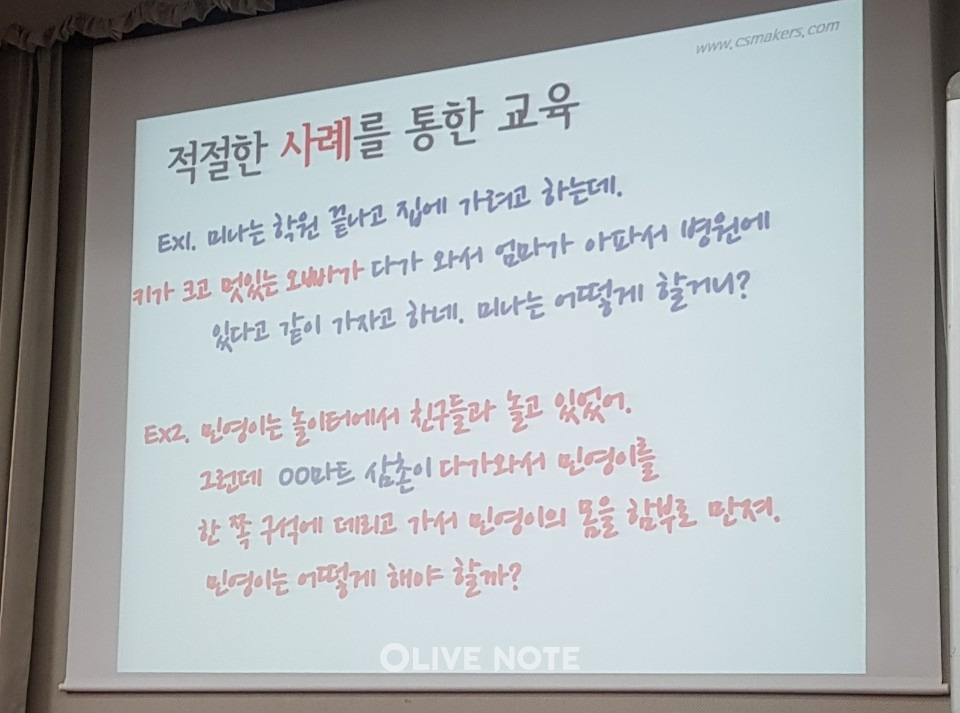 www.csmakers.com
적절한 사례를 통한 교육
Ex1. 미나는 학원 끝나고 집에 가려고 하는데.
키가 크고 멋있는 오빠가 다가 와서 엄마가 아파서 병원에
있다고 같이 가자고 하네. 미나는 어떻게 할거니?
Ex2. 민영이는 놀이터에서 친구들과 놀고 있었어.
그런데 OO마트 삼촌이 다가와서 민영이를
한 쪽 구석에 데리고 가서 민영이의 몸을 함부로 만져.
민영이는 어떻게 해야 할까?
OLIVE NOTE